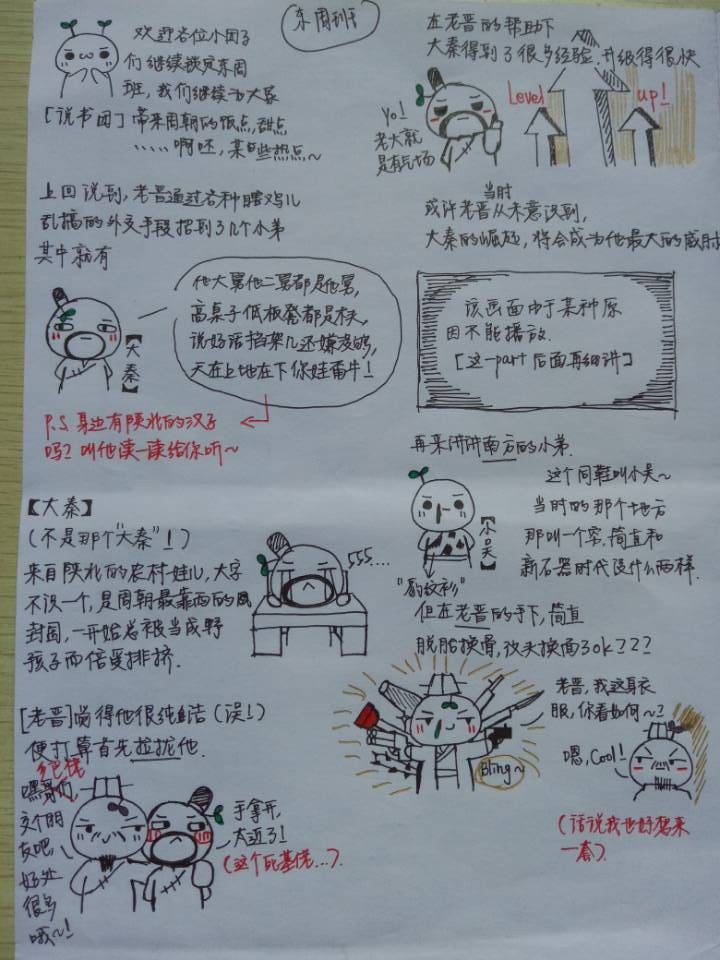 东周班
欢迎各位小团子
们继续披览东周
班，我们继续为大家
[说书团] 带来周朝的饭点，甜点
……啊呸，某些热点～
上回说到，老晋通过各种瞎鸡儿
乱搞的外交手段招到了几个小弟
其中就有
他大舅他二舅都是他舅，
高桌子低板凳都是木头，
说好话挡架儿还嫌没够，
天在上地在下你娃甭牛！
【大秦】
P.S 身边有陕北的汉子
吗？叫他读一读给你听～
【大秦】
（不是那个“大秦”！）
来自陕北的农村娃儿，大字
不识一个，是周朝最靠西的
封国，一开始总被当成野
孩子而倍受排挤.
555....
[老晋]觉得他很纯洁（误！）
便打算首先拉拢他.
嘿哥们
交个朋
友吧，
好处
很多
哦～！
手拿开，
太近了！
（这个死基佬...）
在老晋的帮助下
大秦得到了很多经验，升级得很快
Yo！
老大就
是有气场
Level up！
当时
或许老晋从未意识到，
大秦的崛起，将会成为他最大的威胁
该画面由于某种原
因不能播放.
[这一part后面再细讲]
再来讲讲南方的小弟.
这个同鞋叫小吴～
当时的那个地方
那叫一个穷，简直和
新石器时代没什么两样.
【小吴】
“豹纹衫”
但在老晋的手下，简直
脱胎换骨，改头换面了ok？？？
老晋，我这身衣
服，你看如何～？
Bling～
嗯，Cool！
（话说我也好想来
一套）